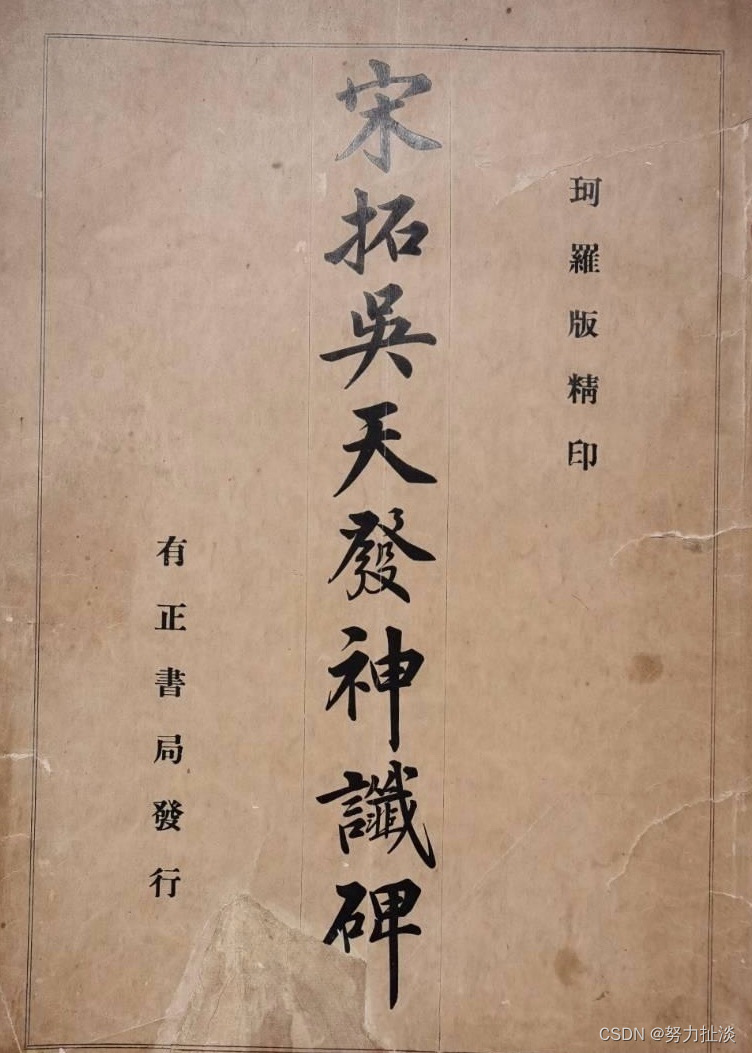 珂羅版精印
宋拓吳天發神讖碑
有正書局發行
CSDN @努力扯淡